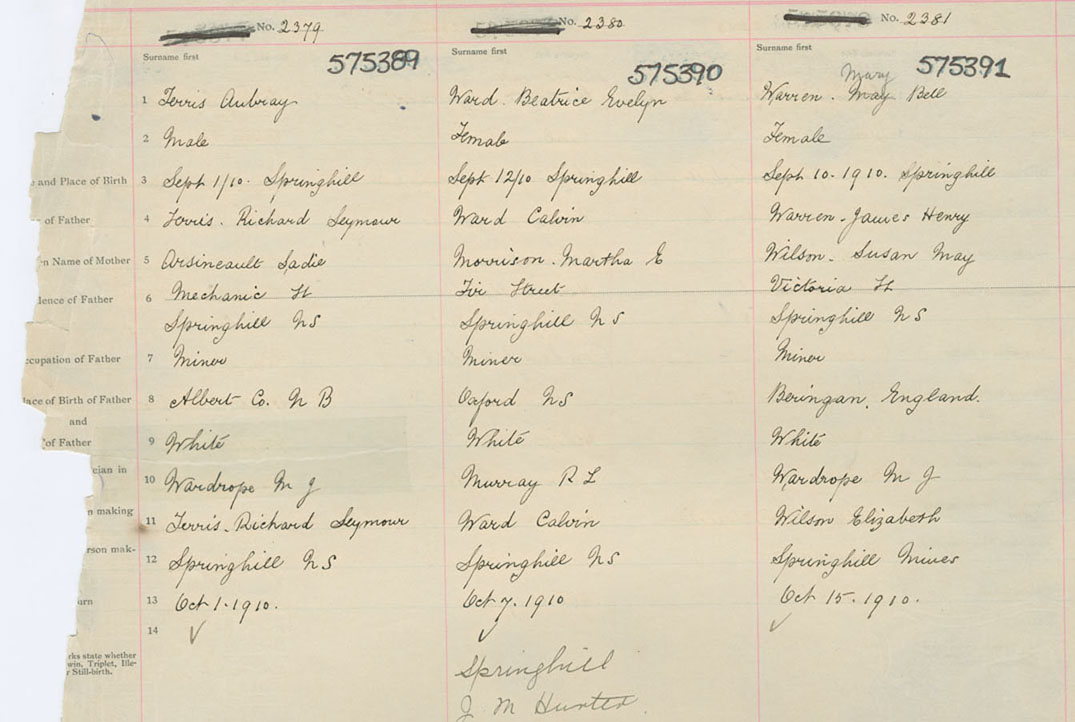 No. 2379 No. 2380 No. 2381
Surname first Surname first Surname first
575389 575390 575391
Mary
1 Ferris Aubray Ward. Beatrice Evelyn Warren. May Bell
2 Male Female Female
e and Place of Birth 3 Sept 1/10. Springhill Sept 12/10 Springhill Sept 10. 1910. Springhill
of Father 4 Ferris. Richard Seymour Ward Calvin Warren. James Henry
n Name of Mother 5 Arsineault Sadie Morrison. Martha E Wilson. Susan May
dence of Father 6 Mechanic St Fir Street Victoria St
Springhill NS Springhill NS Springhill NS
ccupation of Father 7 Miner Miner Miner
lace of Birth of Father 8 Albert Co. N B Oxford NS Beringan, England.
and
of Father 9 White White White
cian in
10 Wardrope M J Murray R L Wardrope M J
n making
11 Ferris. Richard Seymour Ward Calvin Wilson Elizabeth
rson mak-
12 Springhill NS Springhill NS Springhill Mines
orn 13 Oct 1. 1910. Oct 7. 1910 Oct 15. 1910.
14 ✓ ✓ ✓
rks state whether
win, Triplet, Ille-
r Still-birth.
Springhill
J M Hunter.